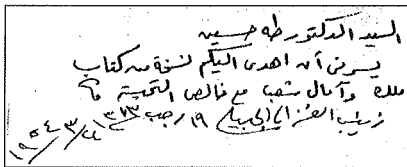 السيد الدكتور طه حسين
يسرني أن اهدي اليكم نسخة من كتاب
ملك وآمال شعب مع خالص التحية
زينب الغزالي الجبيلي ١٩ رجب ١٣٧٣
١٩٥٤/٣/٢٤